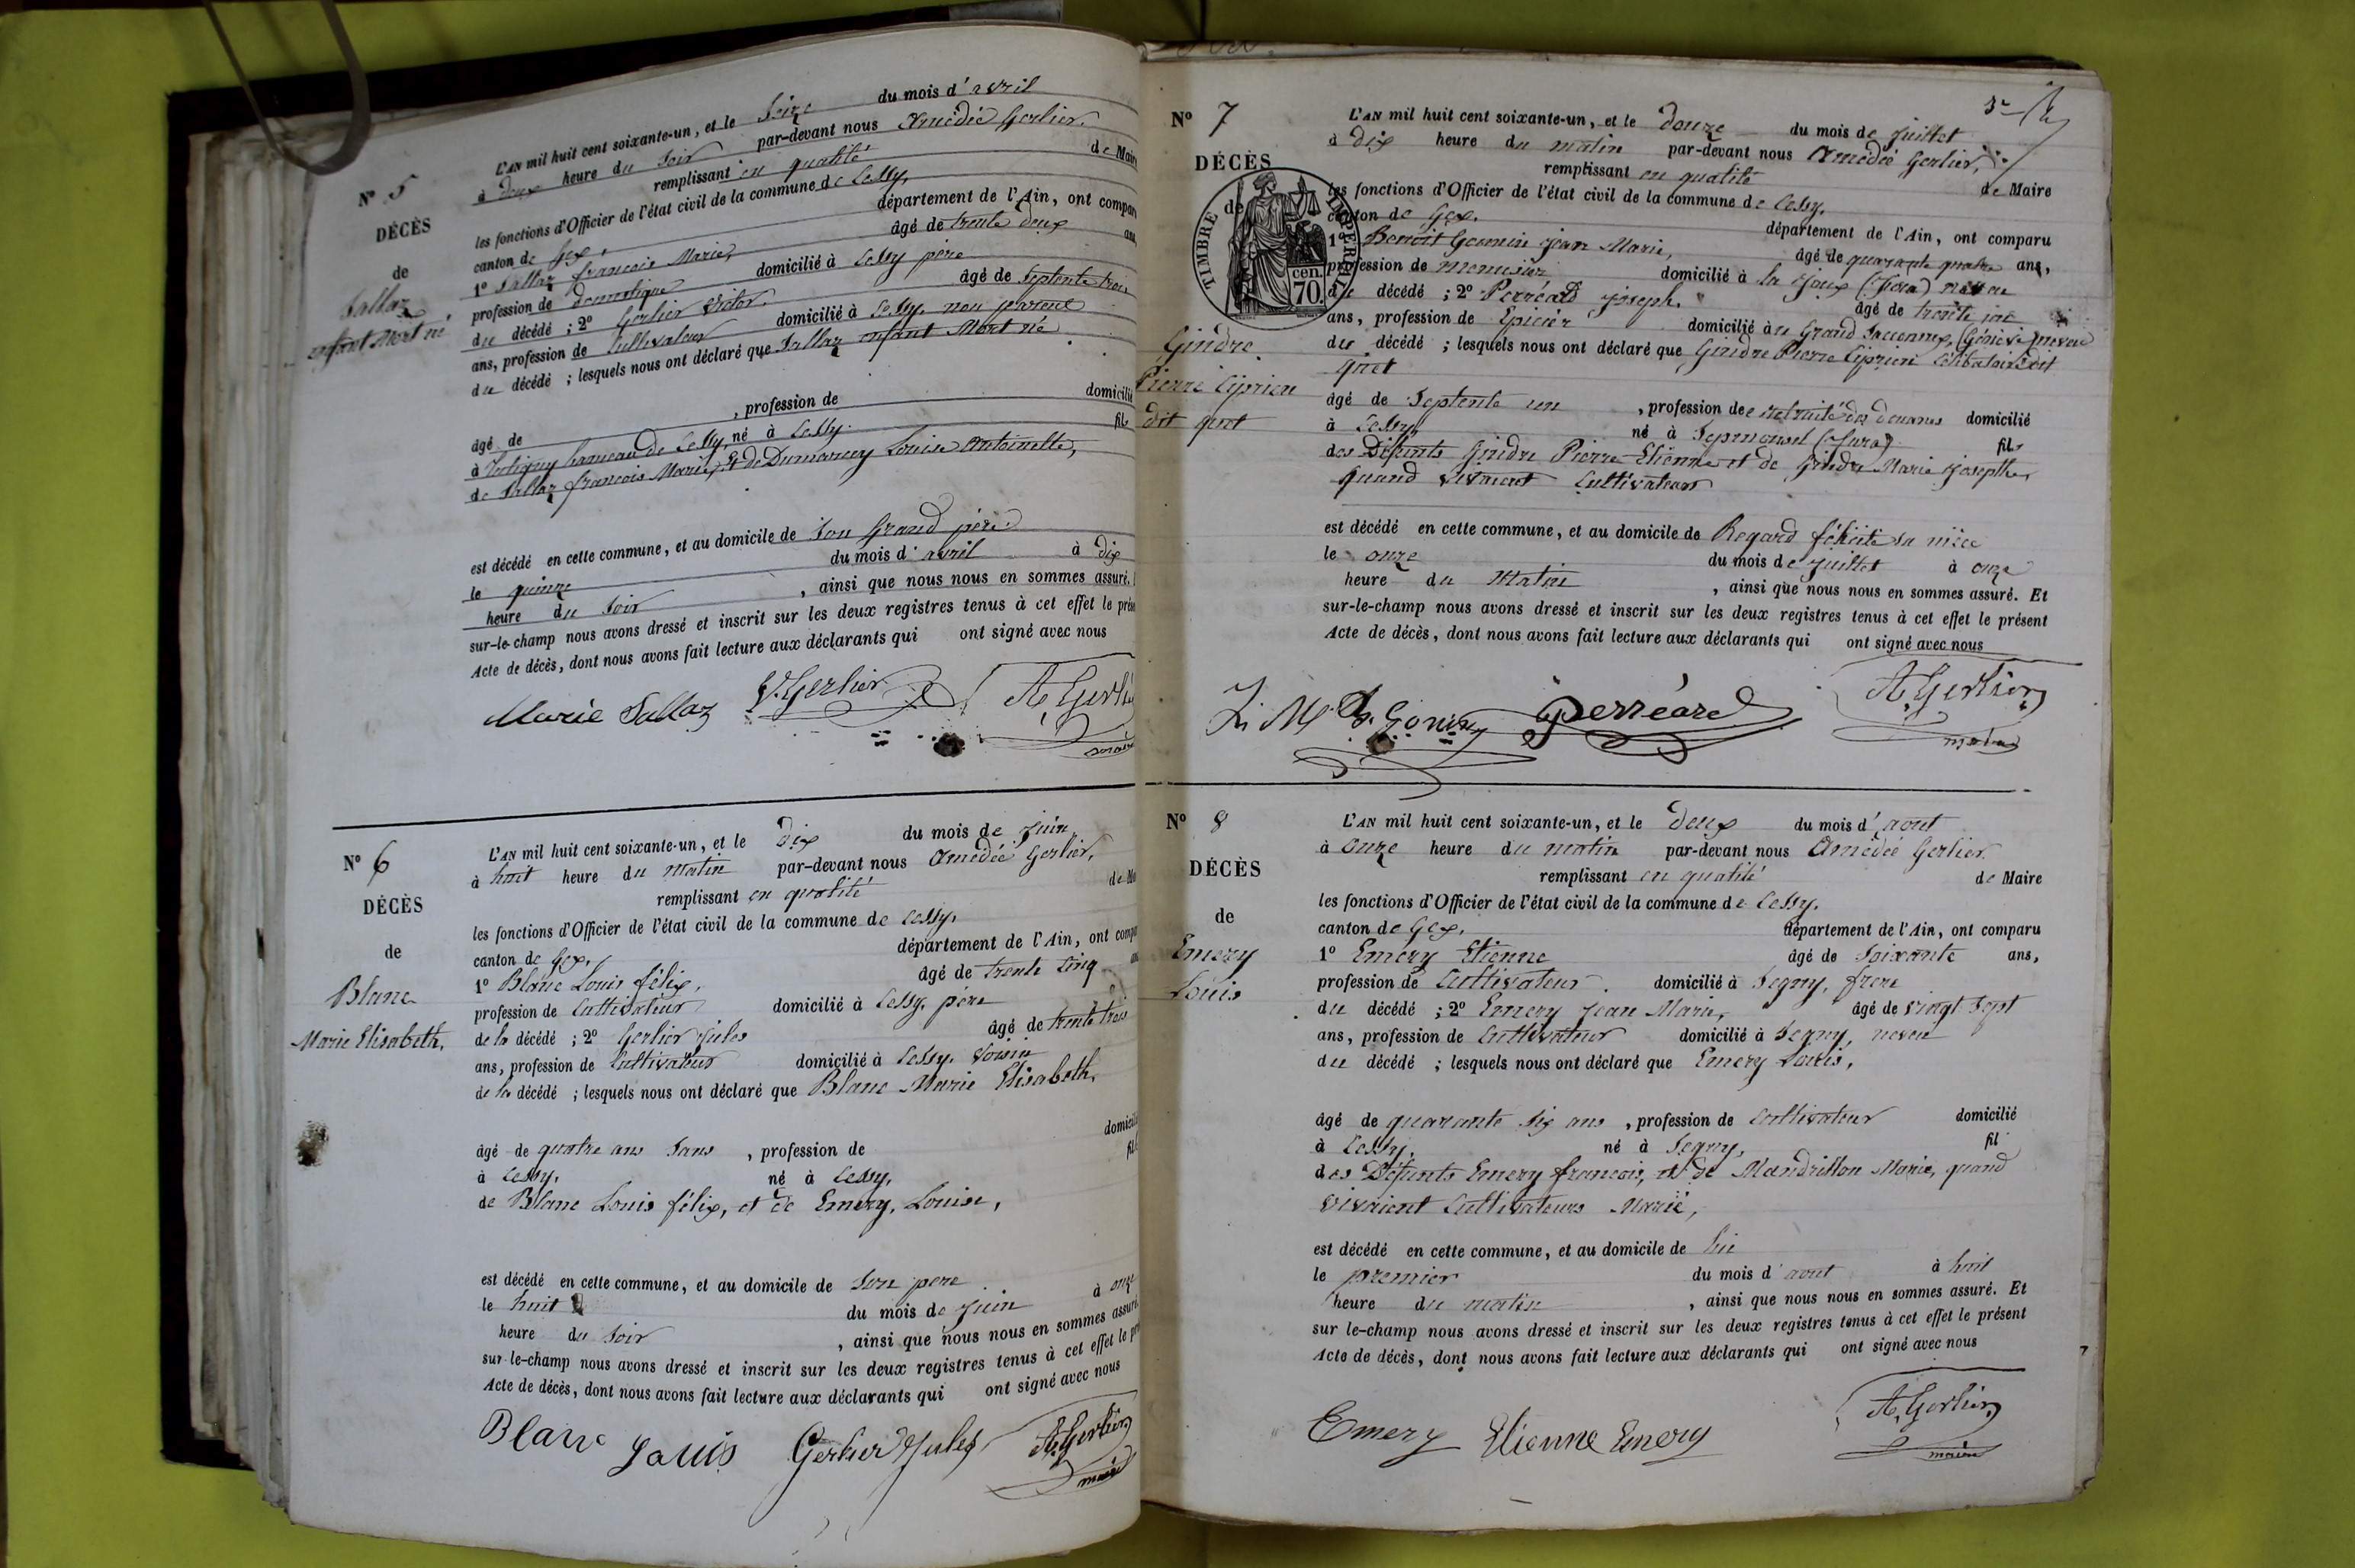 Nº 5
DÉCÈS
de
Sallaz
enfant Mort né
L'AN mil huit cent soixante-un, et le Seize du mois d'avril
à deux heure du Soir par-devant nous Amédée Gerlier,
remplissant en qualité de Maire
les fonctions d'Officier de l'état civil de la commune de Cessy,
canton de Gex, département de l'Ain, ont comparu
1º Sallaz francois Marie, âgé de trente deux ans,
profession de domestique domicilié à Cessy père
du décédé ; 2º Gerlier Victor âgé de Septente trois
ans, profession de Cultivateur domicilié à Cessy, non parent
du décédé ; lesquels nous ont déclaré que Sallaz enfant Mort né
âgé de , profession de domicilié
à Tutigny hameau de Cessy, né à Cessy. fils
de Sallaz francois Marie, et de Dumarcey Louise Antoinette,
est décédé en cette commune, et au domicile de Son Grand père
le quinze du mois d'avril à dix
heure du Soir , ainsi que nous nous en sommes assuré.
sur-le-champ nous avons dressé et inscrit sur les deux registres tenus à cet effet le prés
Acte de décès, dont nous avons fait lecture aux déclarants qui ont signé avec nous
Marie Sallaz V. Gerlier A. Gerlier
maire
Nº 6
DÉCÈS
de
Blanc
Marie Elisabeth,
L'AN mil huit cent soixante-un, et le dix du mois de juin,
à huit heure du matin par-devant nous Amédée Gerlier,
remplissant en qualité de Ma
les fonctions d'Officier de l'état civil de la commune de Cessy,
canton de Gex, département de l'Ain, ont compa
1º Blanc Louis félix, âgé de trente cinq an
profession de Cultivateur domicilié à Cessy, père
de la décédé ; 2º Gerlier Jules âgé de trente trois
ans, profession de Cultivateur domicilié à Cessy, voisin
de la décédé ; lesquels nous ont déclaré que Blanc Marie Elisabeth,
âgé de quatre ans Sans , profession de domicilié
à Cessy, né à Cessy, fil
de Blanc Louis félix, et de Emery, Louise,
est décédé en cette commune, et au domicile de Son père
le huit du mois de juin à onze
heure du Soir , ainsi que nous nous en sommes assuré.
sur-le-champ nous avons dressé et inscrit sur les deux registres tenus à cet effet le pré
Acte de décès, dont nous avons fait lecture aux déclarants qui ont signé avec nous
Blanc Louis Gerlier Jules A. Gerlier
maire
Nº 7
DÉCÈS
de
TIMBRE IMPERIAL
70 cen.
Gindre
Pierre Ciprien
dit quet
L'AN mil huit cent soixante-un, et le douze du mois de juillet
à dix heure du matin par-devant nous Amédée Gerlier,
remplissant en qualité de Maire
les fonctions d'Officier de l'état civil de la commune de Cessy,
canton de Gex, département de l'Ain, ont comparu
1º Benoit Gonnin Jean Marie, âgé de quarante quatre ans,
profession de menuisier domicilié à la Joux (Jura) neveu
du décédé ; 2º Perréard joseph, âgé de trente un
ans, profession de Epicier domicilié à u Grand Saconnex, (Génève) neveu
du décédé ; lesquels nous ont déclaré que Gindre Pierre Ciprien Célibataire dit
quet
âgé de Septente un , profession de retraité des douanes domicilié
à Cessy, né à Septmoncel (Jura) fils
des Défunts Gindre Pierre Etienne et de Gindre Marie josepthe,
quand vivaient Cultivateurs
est décédé en cette commune, et au domicile de Regard félicité sa nièce
le onze du mois de juillet à onze
heure du Matin , ainsi que nous nous en sommes assuré. Et
sur-le-champ nous avons dressé et inscrit sur les deux registres tenus à cet effet le présent
Acte de décès, dont nous avons fait lecture aux déclarants qui ont signé avec nous
perréard A. Gerlier
maire
Nº 8
DÉCÈS
de
Emery
Louis
L'AN mil huit cent soixante-un, et le deux du mois d'aout
à onze heure du matin par-devant nous Amédée Gerlier
remplissant en qualité de Maire
les fonctions d'Officier de l'état civil de la commune de Cessy,
canton de Gex, département de l'Ain, ont comparu
1º Emery Etienne âgé de Soixante ans,
profession de Cultivateur domicilié à Segny, frere
du décédé ; 2º Emery Jean Marie, âgé de vingt Sept
ans, profession de Cultivateur domicilié à Segny, neveu
du décédé ; lesquels nous ont déclaré que Emery Louis,
âgé de quarante Six ans , profession de Cultivateur domicilié
à Cessy, né à Segny, fil
des Défunts Emery francois, et de Mandrillon Marie, quand
vivaient Cultivateurs Marié,
est décédé en cette commune, et au domicile de lui
le premier du mois d'aout à huit
heure du matin , ainsi que nous nous en sommes assuré. Et
sur le-champ nous avons dressé et inscrit sur les deux registres tenus à cet effet le présent
Acte de décès, dont nous avons fait lecture aux déclarants qui ont signé avec nous
Emery Etienne Emery A. Gerlier
maire